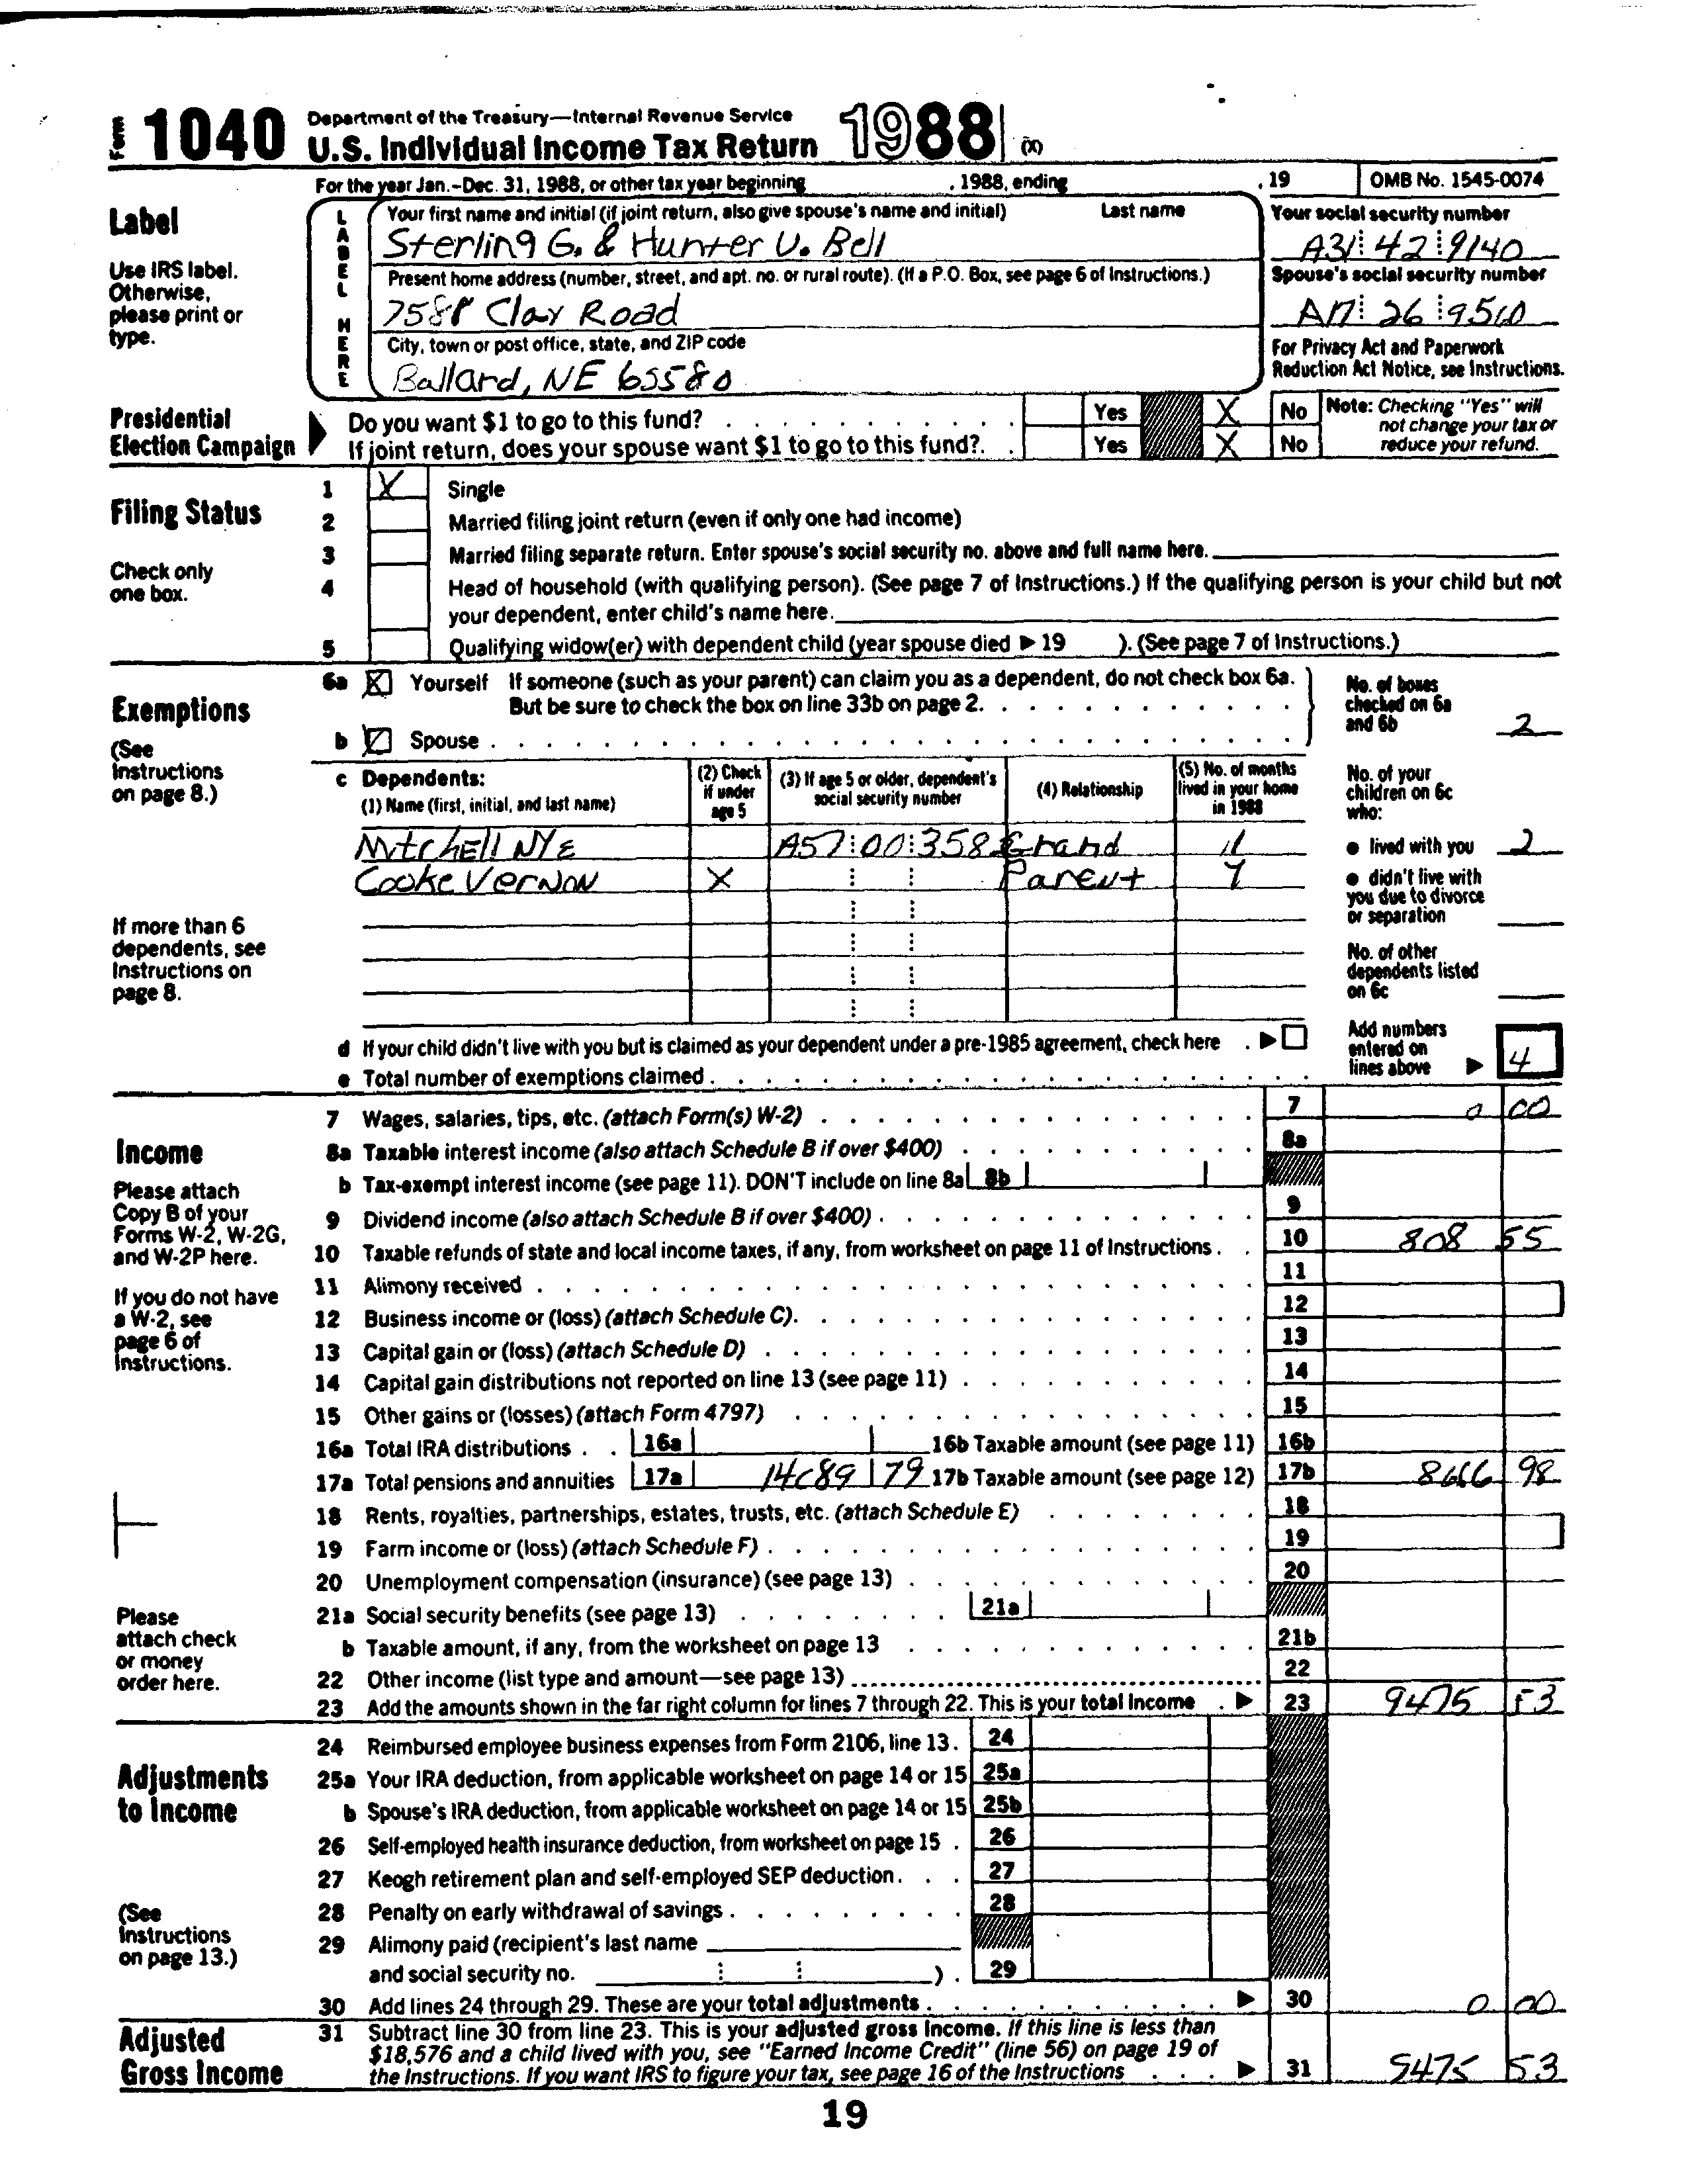 Form 1040 Department of the Treasury—Internal Revenue Service
U.S. Individual Income Tax Return 1988 (X)
For the year Jan.–Dec. 31, 1988, or other tax year beginning , 1988, ending , 19 OMB No. 1545-0074
Label
Use IRS label.
Otherwise,
please print or
type.
LABEL HERE
Your first name and initial (if joint return, also give spouse's name and initial) Last name
Sterling G. & Hunter U. Bell
Your social security number
A31 42 9140
Present home address (number, street, and apt. no. or rural route). (If a P.O. Box, see page 6 of Instructions.)
Clay Road
Spouse's social security number
26
City, town or post office, state, and ZIP code
Ballard, NE 65580
For Privacy Act and Paperwork
Reduction Act Notice, see Instructions.
Presidential
Election Campaign
Do you want $1 to go to this fund? Yes X No
If joint return, does your spouse want $1 to go to this fund?. Yes X No
Note: Checking "Yes" will
not change your tax or
reduce your refund.
Filing Status
Check only
one box.
1 X Single
2 Married filing joint return (even if only one had income)
3 Married filing separate return. Enter spouse's social security no. above and full name here.
4 Head of household (with qualifying person). (See page 7 of Instructions.) If the qualifying person is your child but not
your dependent, enter child's name here.
5 Qualifying widow(er) with dependent child (year spouse died ▶ 19 ). (See page 7 of Instructions.)
Exemptions
(See
Instructions
on page 8.)
6a X Yourself If someone (such as your parent) can claim you as a dependent, do not check box 6a.
But be sure to check the box on line 33b on page 2.
b Spouse
No. of boxes
checked on 6a
and 6b 2
c Dependents:
(1) Name (first, initial, and last name)
(2) Check
if under
age 5
(3) If age 5 or older, dependent's
social security number
(4) Relationship
(5) No. of months
lived in your home
in 1988
Mitchell Nye A57 00 358 Grand 11
Cooke Vernon X Parent
No. of your
children on 6c
who:
● lived with you 2
● didn't live with
you due to divorce
or separation
No. of other
dependents listed
on 6c
If more than 6
dependents, see
Instructions on
page 8.
d If your child didn't live with you but is claimed as your dependent under a pre-1985 agreement, check here ▶
e Total number of exemptions claimed
Add numbers
entered on
lines above ▶ 4
Income
Please attach
Copy B of your
Forms W-2, W-2G,
and W-2P here.
If you do not have
a W-2, see
page 6 of
Instructions.
Please
attach check
or money
order here.
7 Wages, salaries, tips, etc. (attach Form(s) W-2) 7 0 00
8a Taxable interest income (also attach Schedule B if over $400) 8a
b Tax-exempt interest income (see page 11). DON'T include on line 8a 8b
9 Dividend income (also attach Schedule B if over $400) 9
10 Taxable refunds of state and local income taxes, if any, from worksheet on page 11 of Instructions 10 808 55
11 Alimony received 11
12 Business income or (loss) (attach Schedule C). 12
13 Capital gain or (loss) (attach Schedule D) 13
14 Capital gain distributions not reported on line 13 (see page 11) 14
15 Other gains or (losses) (attach Form 4797) 15
16a Total IRA distributions 16a 16b Taxable amount (see page 11) 16b
17a Total pensions and annuities 17a 79 17b Taxable amount (see page 12) 17b 8666 98
18 Rents, royalties, partnerships, estates, trusts, etc. (attach Schedule E) 18
19 Farm income or (loss) (attach Schedule F) 19
20 Unemployment compensation (insurance) (see page 13) 20
21a Social security benefits (see page 13) 21a
b Taxable amount, if any, from the worksheet on page 13 21b
22 Other income (list type and amount—see page 13) 22
23 Add the amounts shown in the far right column for lines 7 through 22. This is your total income ▶ 23 9475 53
Adjustments
to Income
(See
Instructions
on page 13.)
24 Reimbursed employee business expenses from Form 2106, line 13. 24
25a Your IRA deduction, from applicable worksheet on page 14 or 15 25a
b Spouse's IRA deduction, from applicable worksheet on page 14 or 15 25b
26 Self-employed health insurance deduction, from worksheet on page 15 26
27 Keogh retirement plan and self-employed SEP deduction 27
28 Penalty on early withdrawal of savings 28
29 Alimony paid (recipient's last name
and social security no. ) 29
30 Add lines 24 through 29. These are your total adjustments ▶ 30 0 00
Adjusted
Gross Income
31 Subtract line 30 from line 23. This is your adjusted gross income. If this line is less than
$18,576 and a child lived with you, see "Earned Income Credit" (line 56) on page 19 of
the Instructions. If you want IRS to figure your tax, see page 16 of the Instructions ▶ 31 9475 53
19